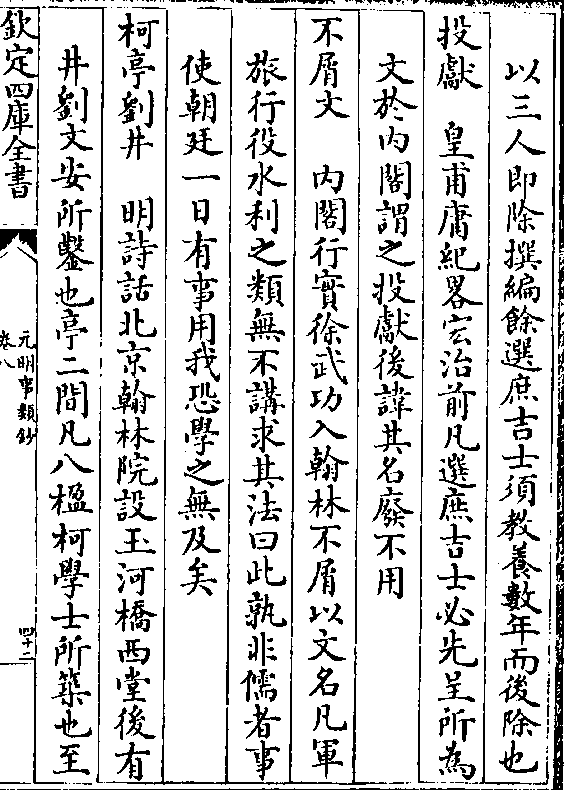 以三人即除撰編餘選庶吉士須教養數年而後除也
投獻　皇甫庸紀畧宏治前凡選庶吉士必先呈所為
文於内閣謂之投獻後諱其名廢不用
不屑文　内閣行實徐武功入翰林不屑以文名凡軍
旅行役水利之類無不講求其法曰此孰非儒者事
使朝廷一日有事用我恐學之無及矣
柯亭劉井　明詩話北京翰林院設玉河橋西堂後有
井劉文安所鑿也亭二間凡八楹柯學士所築也至
欽定四庫全書
元明事類鈔
卷八
四十二